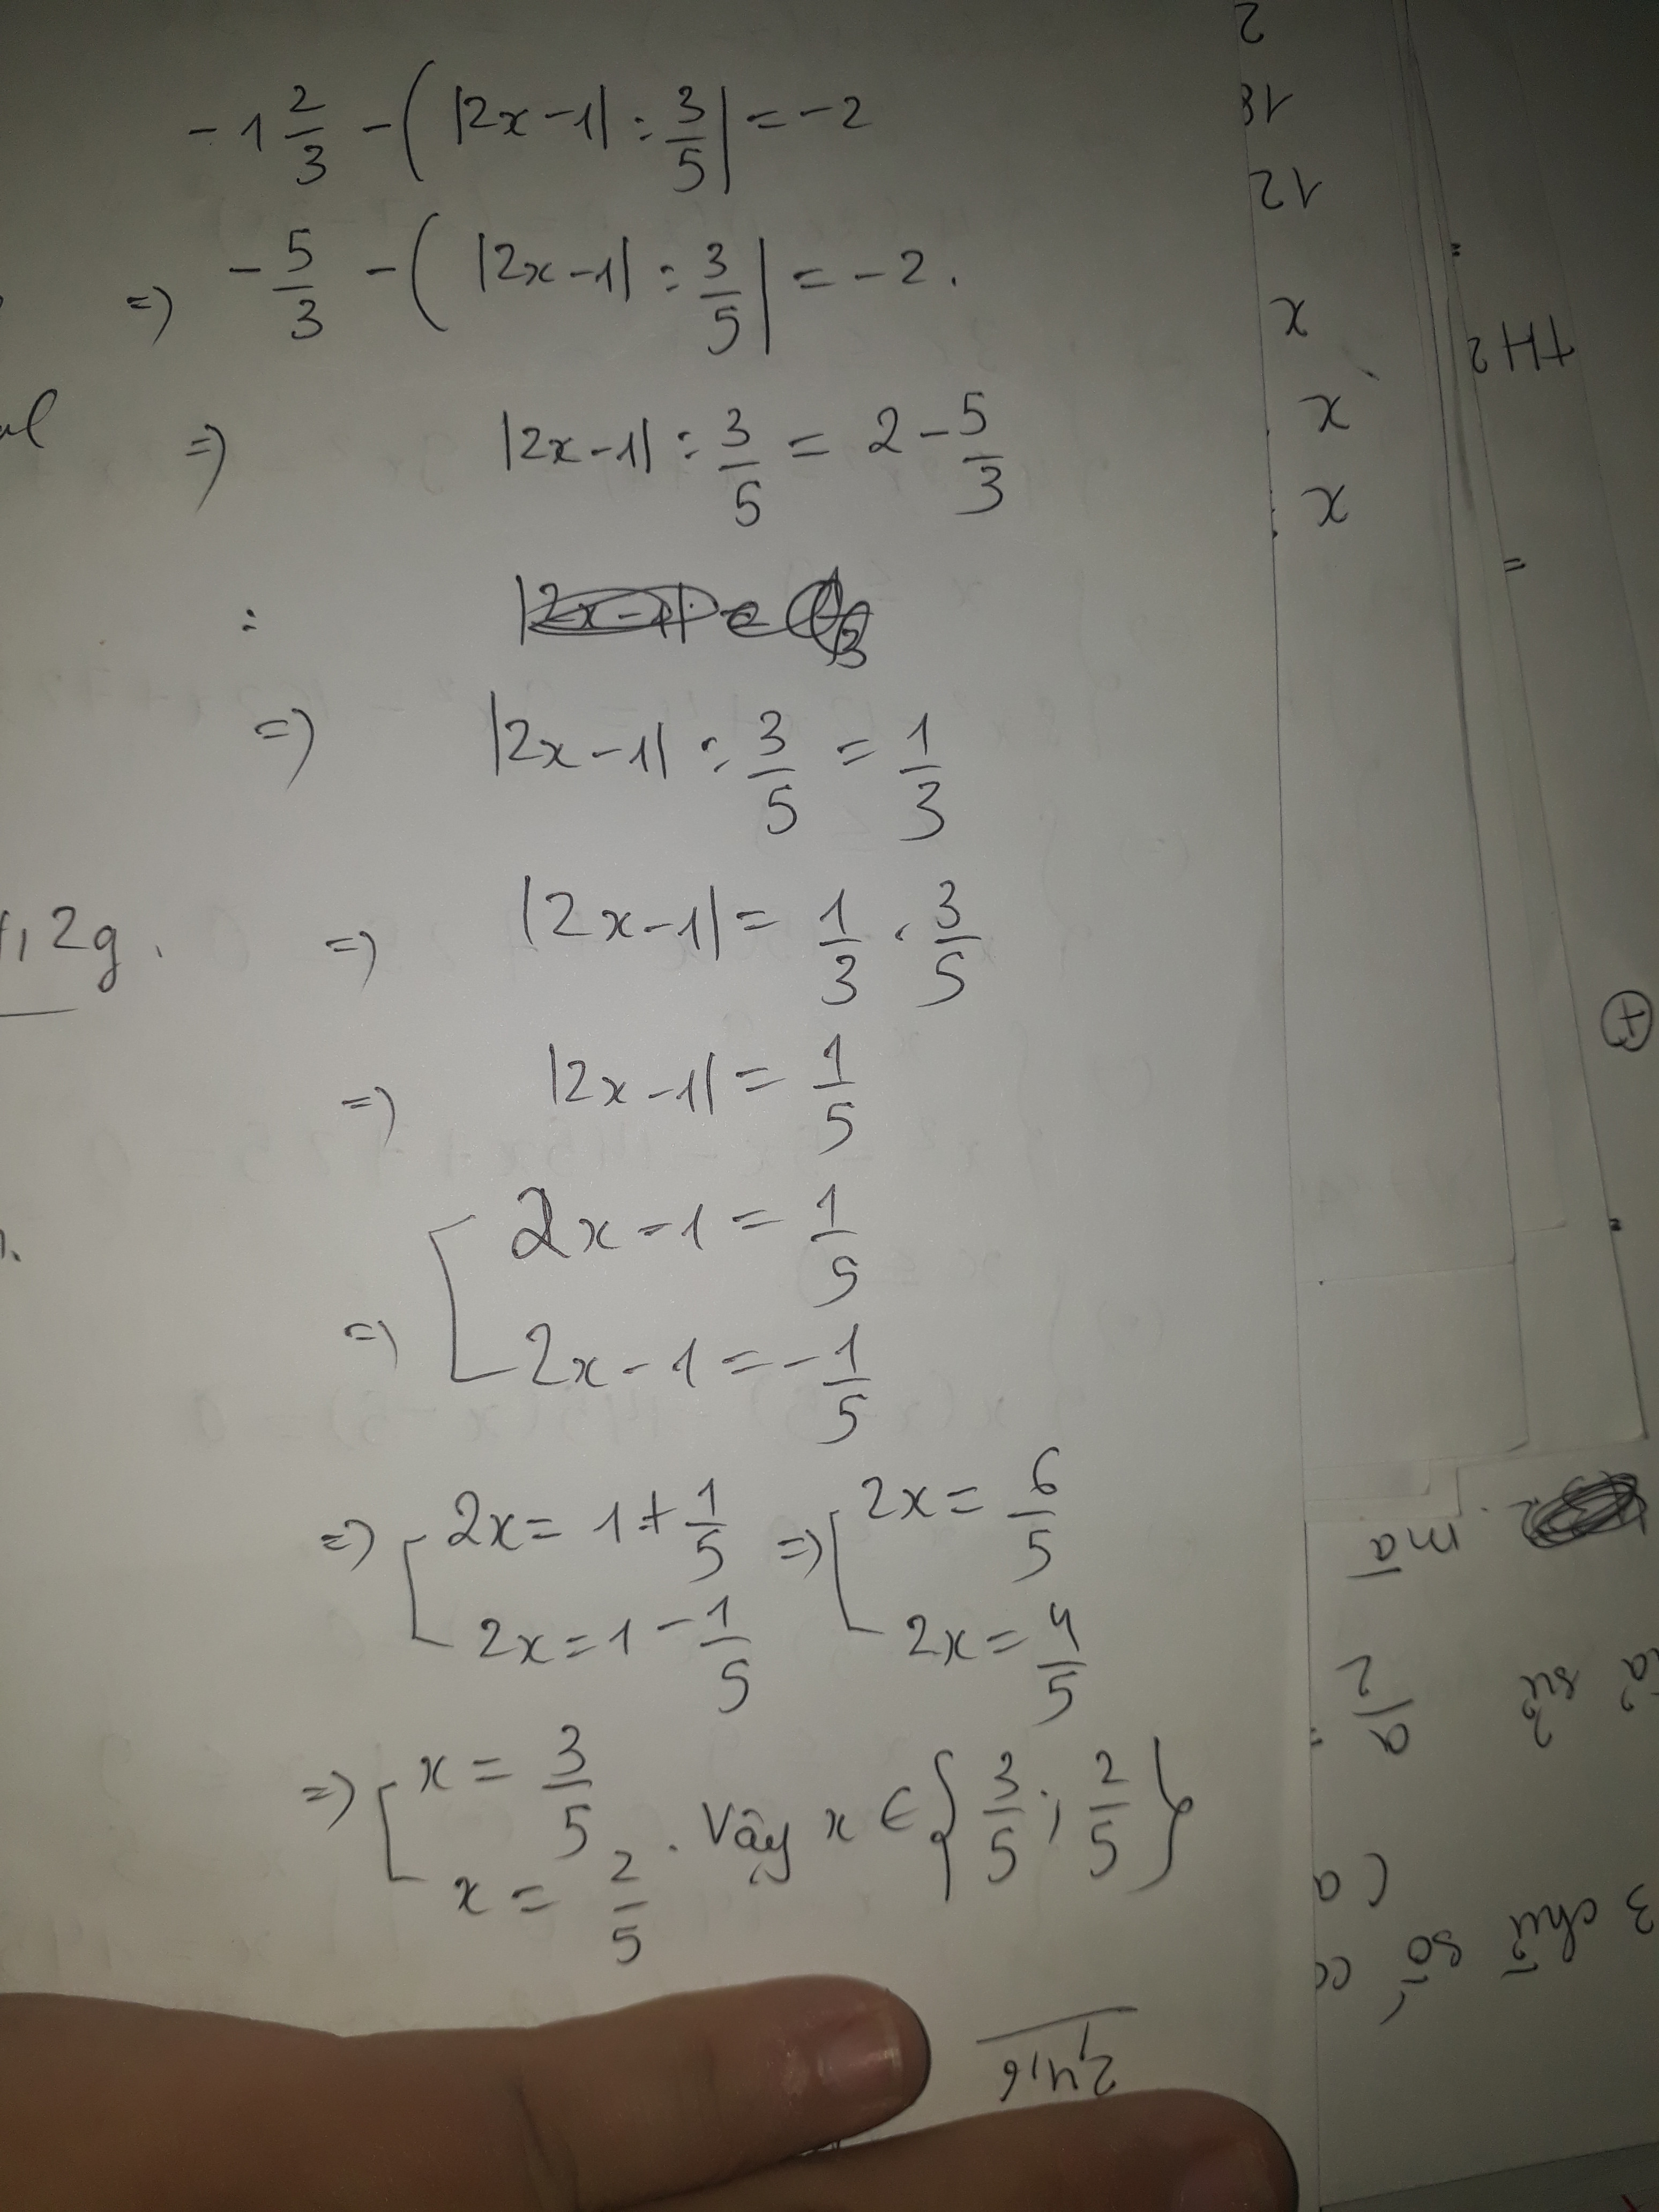 -1 2/3 - ( |2x-1| : 3/5 | = -2
=) -5/3 - ( |2x-1| : 3/5 | = -2.
=) |2x-1| : 3/5 = 2 - 5/3
:
=) |2x-1| : 3/5 = 1/3
=) |2x-1| = 1/3 . 3/5
=) |2x-1| = 1/5
=) [ 2x-1 = 1/5
2x-1 = -1/5
=) [ 2x = 1 + 1/5 =) [ 2x = 6/5
2x = 1 - 1/5 2x = 4/5
=) [ x = 3/5
x = 2/5 . Vậy x ∈ { 3/5 ; 2/5 }
2g.
24,6
2
18
12
x
x
x
TH2
=
+
mà
a/2
sử
3 chữ số